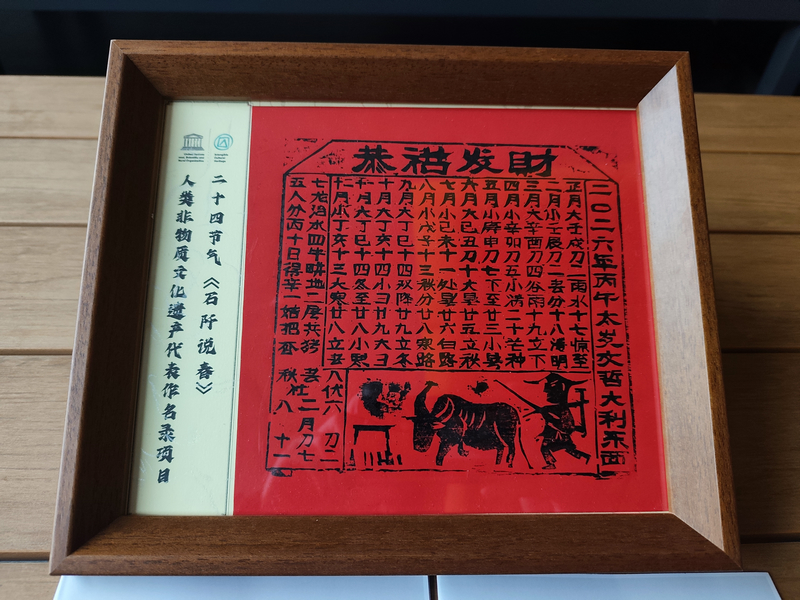 恭禧发財
二〇二六年丙午太岁文哲大利东西
正月大壬戌刀二雨水十七惊至
二月小壬辰刀二春分十八清明
三月大辛酉刀四谷雨十九立下
四月小辛卯刀五小满二十芒种
五月小庚申刀七下至廿三小暑
六月大己丑刀十大暑廿五立秋
七月小己未十一处暑廿六白露
八月小戊子十三秋分廿八寒路
九月大丁巳十四双降廿九立冬
十月大丁亥十四小彐廿九大彐
月大丁巳十四冬至廿八小寒
月小丁亥十三大寒廿八立春
七龙治水四牛耕地二屠共猪
五人分丙十日得辛一姑把蚕
八伏六 刀二
春社二月刀七
秋 八 十一
二十四节气《石阡说春》
人类非物质文化遗产代表作名录项目